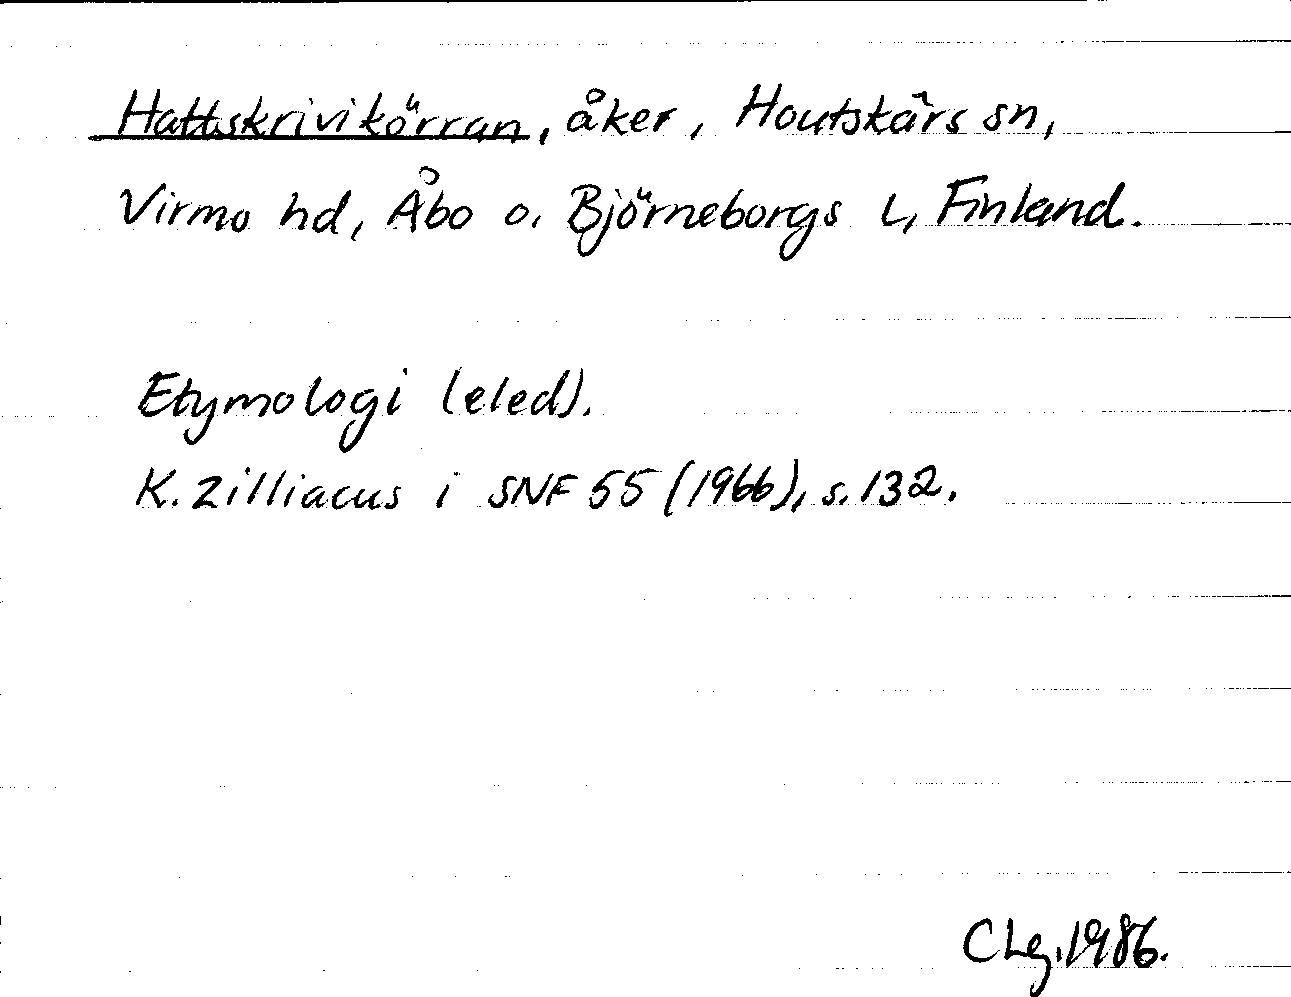 Hattskrivikörran, åker, Houtskärs sn,
Virmo hd, Åbo o. Björneborgs l, Finland.
Etymologi (eled).
K. Zilliacus i SNF 55 (1966), s. 132.
CLg. 1986.